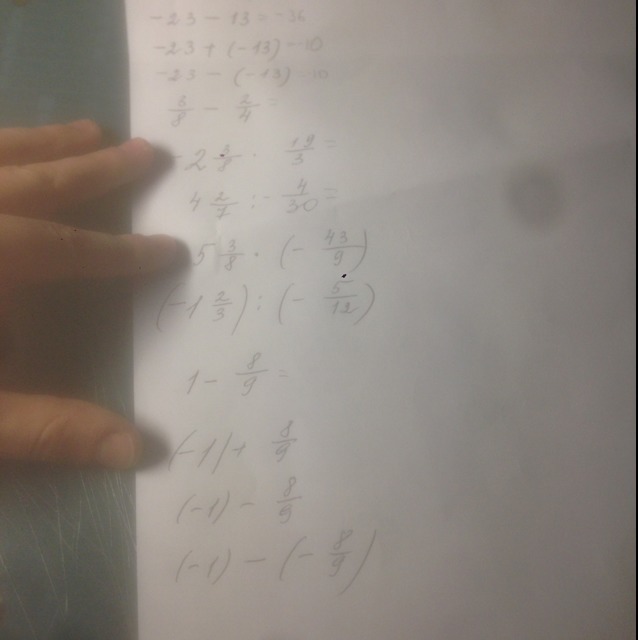 -23 - 13 = -36
-23 + (-13) = -10
-23 - (-13) = 10
3/8 - 2/4 =
-2 3/8 · 19/3 =
4 2/7 : - 4/30 =
5 3/8 · (- 43/9)
(-1 2/3) : (- 5/12)
1 - 8/9 =
(-1) + 8/9
(-1) - 8/9
(-1) - (- 8/9)